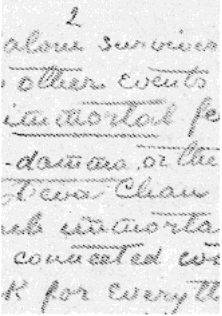 2
alone survives
other events
immortal fe
-damma, or the
Chan
immorta
connected wo
K for everyth